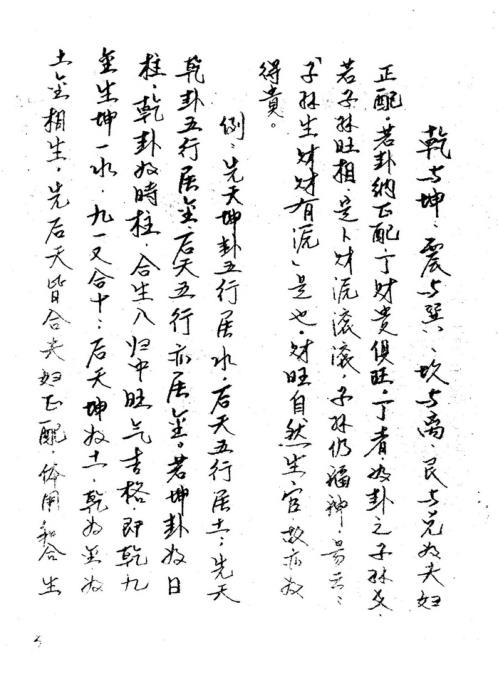 乾与坤、震与巽、坎与离、艮与兑为夫妇
正配。若卦纳正配,丁财贵俱旺,丁者,为卦之子孙爻,
若子孙旺相,是卜财源滚滚,子孙仍福神,易云:
「子孙生财财有源」是也,财旺自然生官故亦为
得贵。
例:先天坤卦五行居水,后天五行居土;先天
乾卦五行居金,后天五行亦居金。若坤卦为日
柱,乾卦为時柱,合生入归中旺气吉格,即乾九
金生坤一水,九一又合十;后天坤为土,乾为金,为
土金相生,先后天皆合夫妇正配,体用和合生